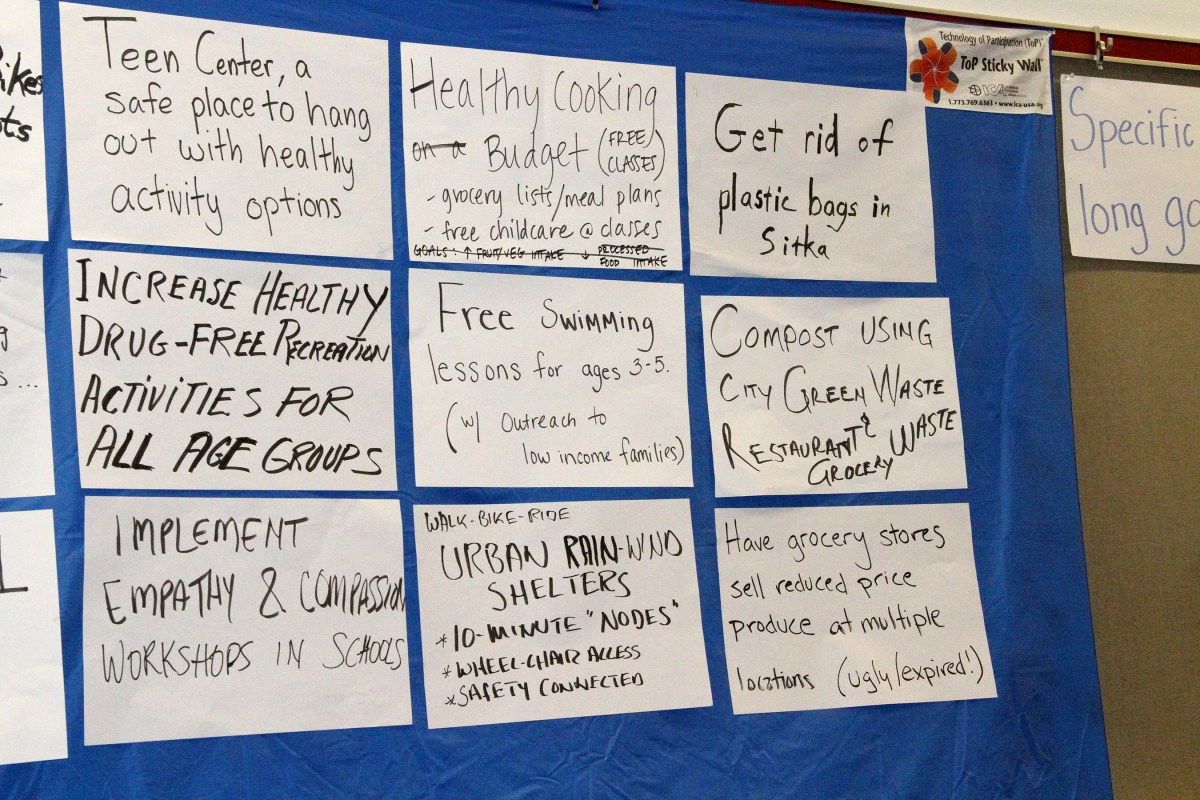 ikes
ots
g
s ...
L
Teen Center, a
safe place to hang
out with healthy
activity options
Healthy Cooking
on a Budget (FREE
CLASSES)
- grocery lists/meal plans
- free childcare @ classes
GOALS: ↑ FRUIT/VEG INTAKE ↓ PROCESSED
FOOD INTAKE
Get rid of
plastic bags in
Sitka
Technology of Participation (ToP)®
ToP Sticky Wall
ICA
1.773.769.6363 • www.ica-usa.org
Specific
long go
INCREASE HEALTHY
DRUG-FREE RECREATION
ACTIVITIES FOR
ALL AGE GROUPS
Free Swimming
lessons for ages 3-5.
(w/ Outreach to
low income families)
COMPOST USING
CITY GREEN WASTE
RESTAURANT & WASTE
GROCERY
IMPLEMENT
EMPATHY & COMPASSION
WORKSHOPS IN SCHOOLS
WALK-BIKE-RIDE
URBAN RAIN-WIND
SHELTERS
*10-MINUTE "NODES"
*WHEEL-CHAIR ACCESS
*SAFETY CONNECTED
Have grocery stores
sell reduced price
produce at multiple
locations (ugly/expired!)